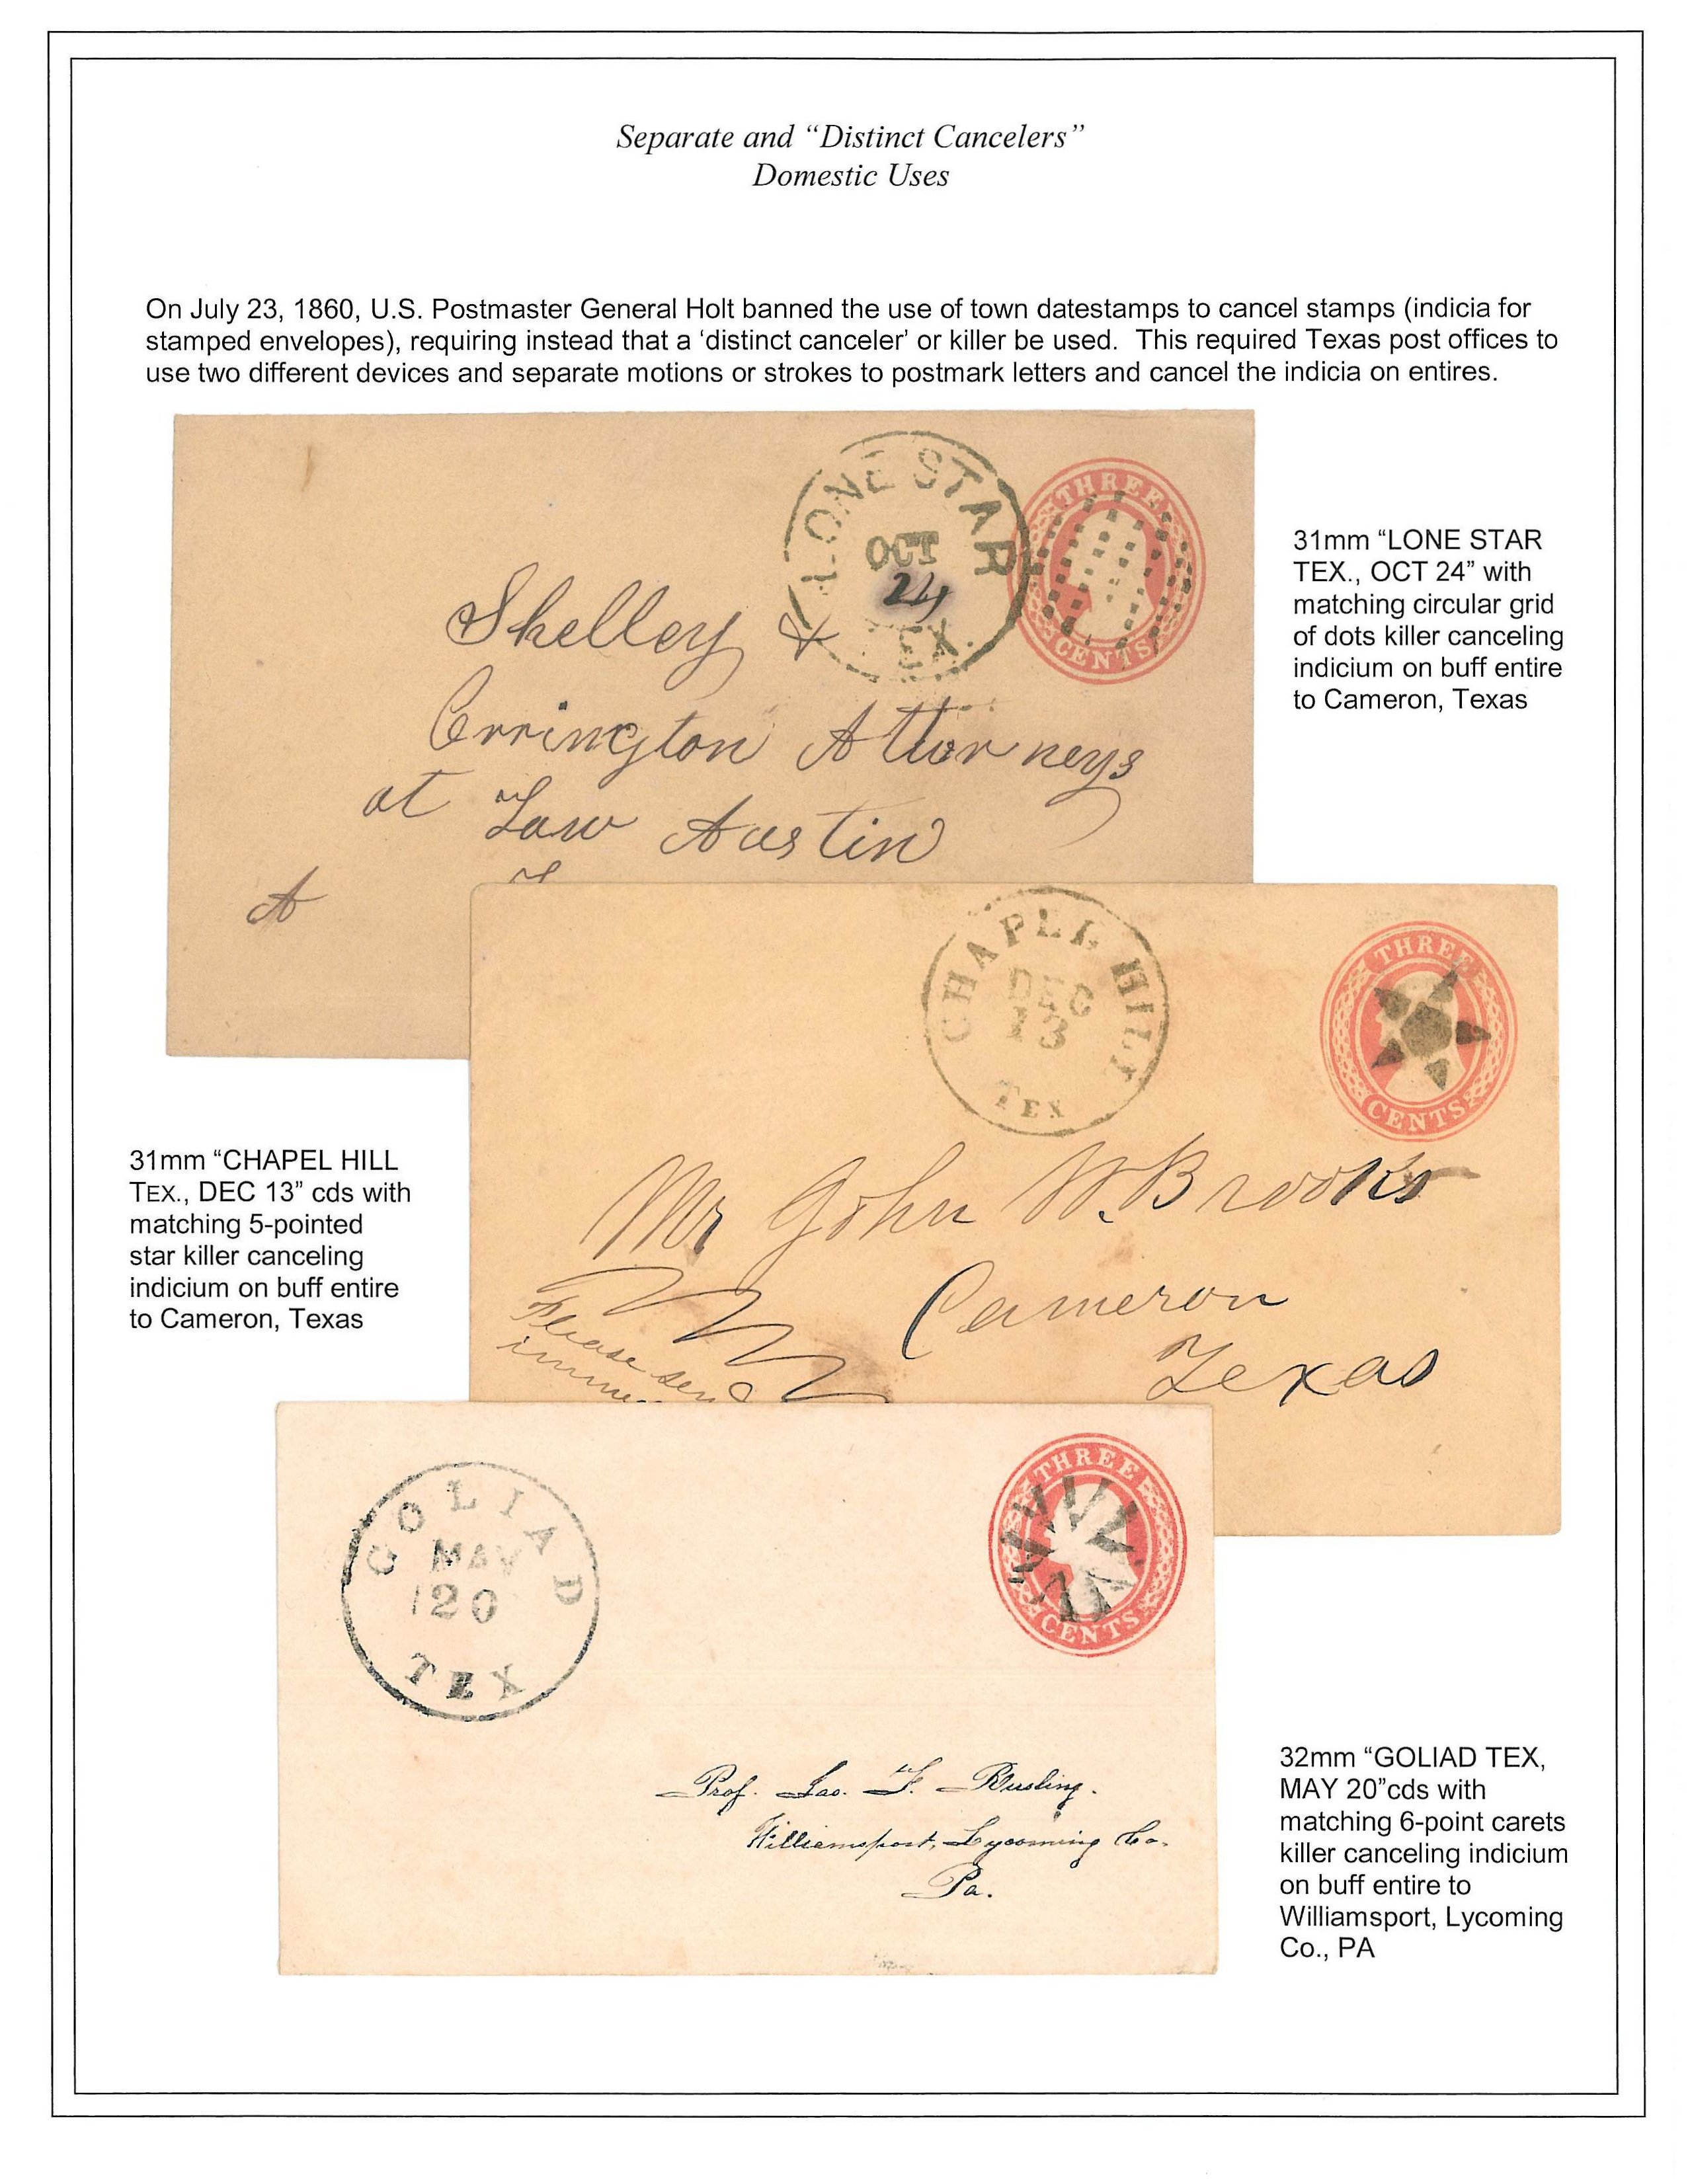 Separate and “Distinct Cancelers”
Domestic Uses
On July 23, 1860, U.S. Postmaster General Holt banned the use of town datestamps to cancel stamps (indicia for
stamped envelopes), requiring instead that a ‘distinct canceler’ or killer be used.  This required Texas post offices to
use two different devices and separate motions or strokes to postmark letters and cancel the indicia on entires.
LONE STAR
OCT
24
TEX.
THREE
CENTS
Shelley &
Errington Attorneys
at Law Austin
31mm “LONE STAR
TEX., OCT 24” with
matching circular grid
of dots killer canceling
indicium on buff entire
to Cameron, Texas
CHAPEL HILL
DEC
13
TEX
THREE
CENTS
Mr John W. Brooks
Cameron
Texas
Please send
31mm “CHAPEL HILL
TEX., DEC 13” cds with
matching 5-pointed
star killer canceling
indicium on buff entire
to Cameron, Texas
GOLIAD
MAY
20
TEX
THREE
CENTS
Prof. Jas. F. Rusling.
Williamsport, Lycoming Co.
Pa.
32mm “GOLIAD TEX,
MAY 20”cds with
matching 6-point carets
killer canceling indicium
on buff entire to
Williamsport, Lycoming
Co., PA